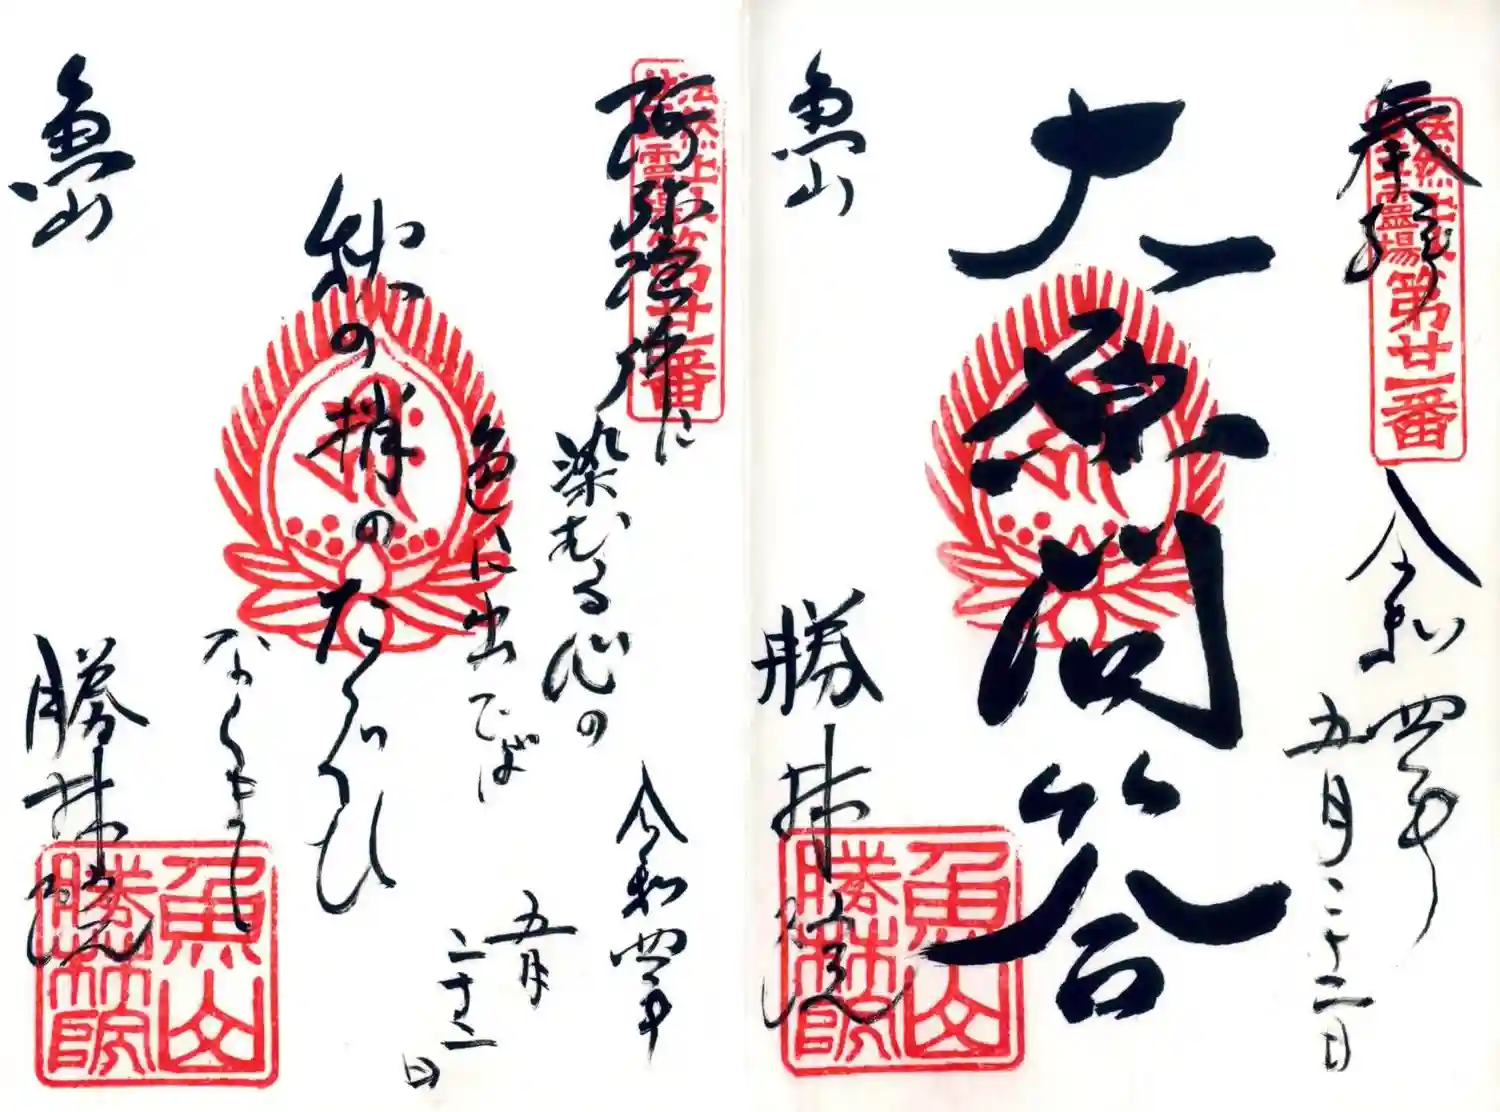 奉拝
法然上人
二十五霊場
第廿一番
令和四年
五月二十二日
大原問答
魚山
勝林院
魚山
勝林院
法然上人
二十五霊場
第廿一番
阿弥陀佛に
染むる心の
色に出でば
秋の梢の
たぐひ
ならまし
令和四年
五月
二十二
日
魚山
勝林院
魚山
勝林院